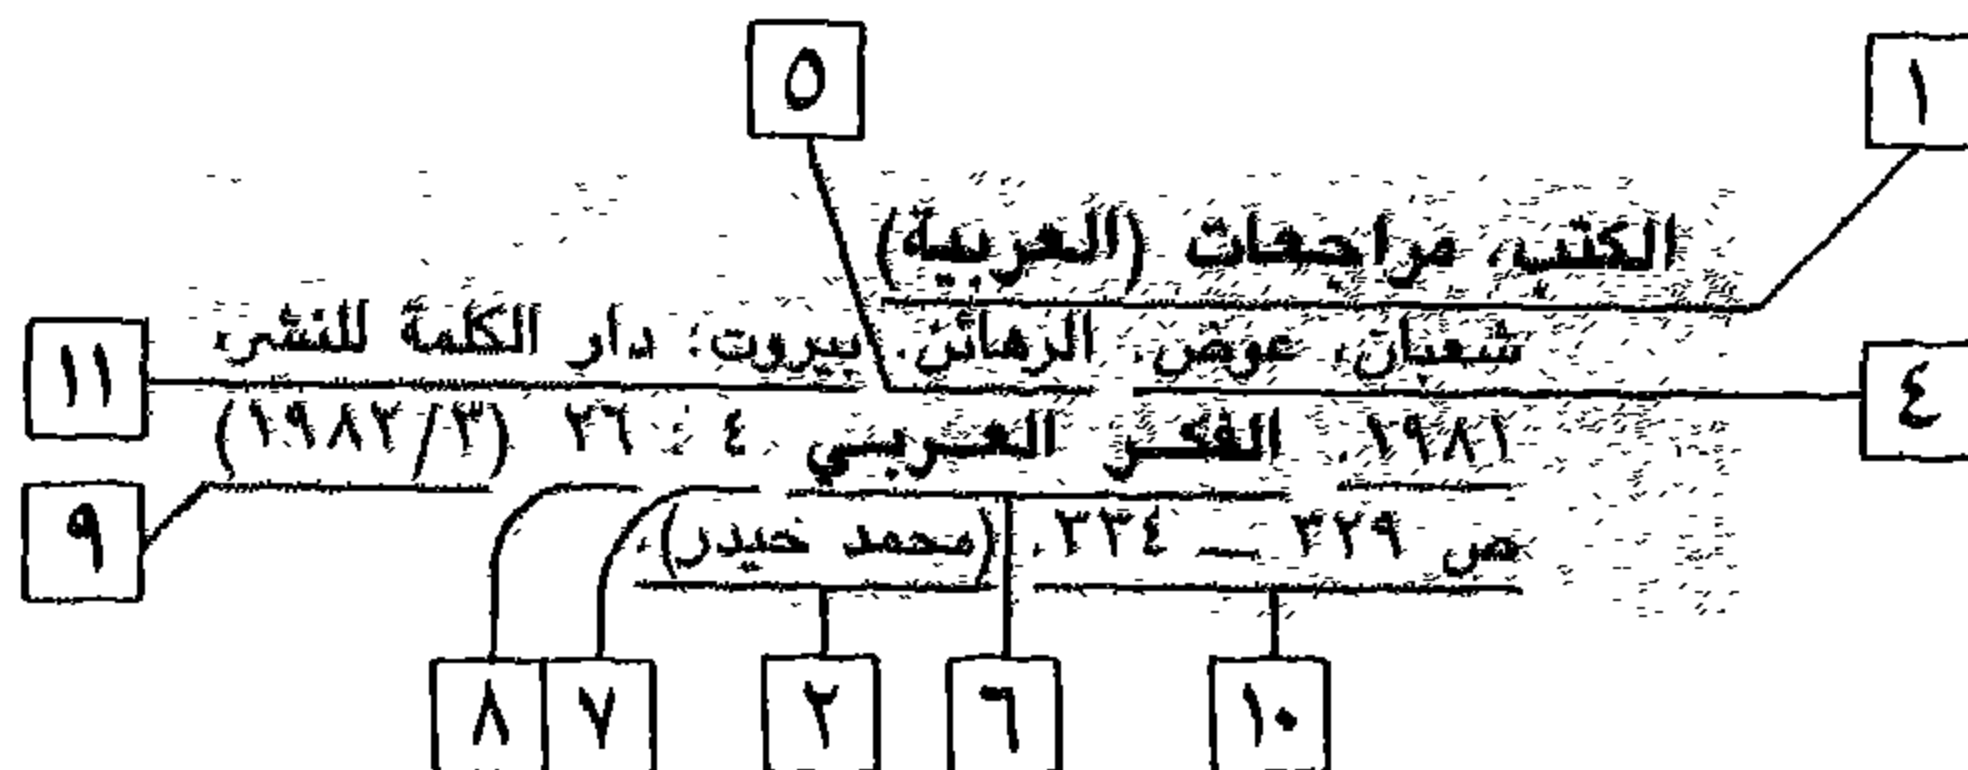 ٥
١
الكتب، مراجعات (العربية)
شعبان، عوض. الرهائن. بيروت: دار الكلمة للنشر،
١١
٤
١٩٨١. الفكر العربي ٤ : ٢٦ (٣/١٩٨٢)
٩
ص ٣٢٩ — ٣٣٤. (محمد حيدر).
٨
٧
٢
٦
١٠